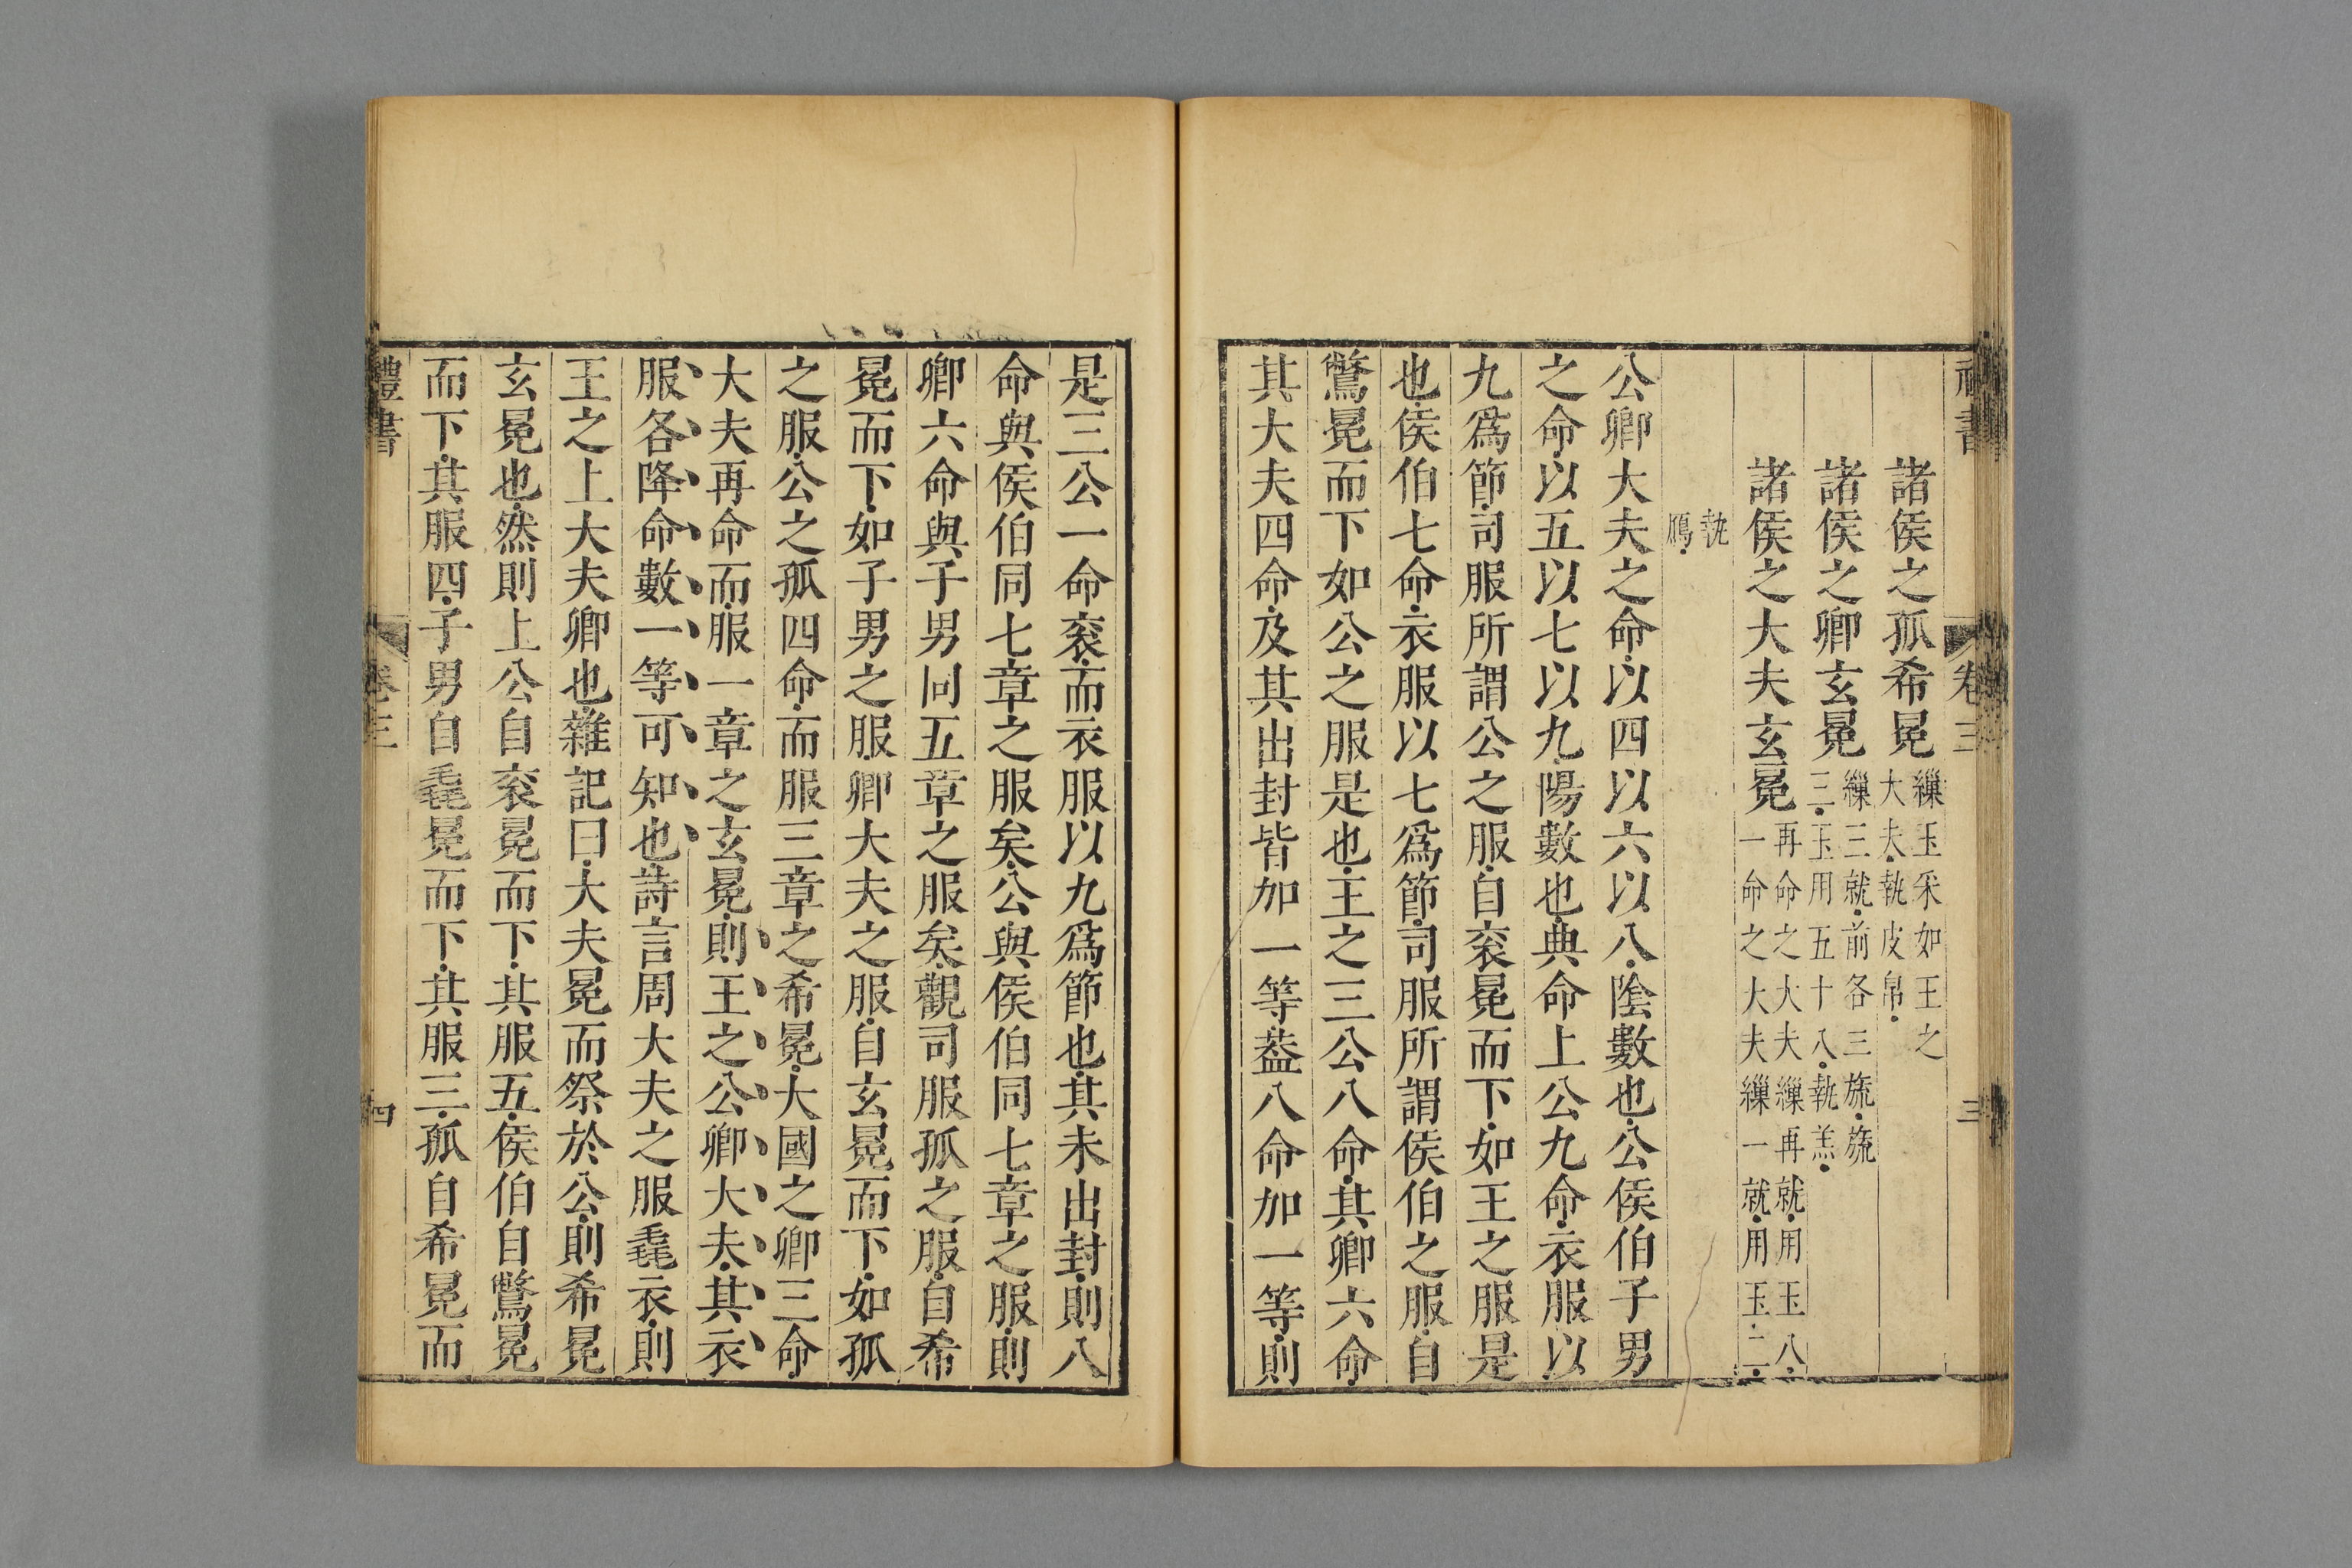 禮書
卷三
三
諸侯之孤希冕繅玉采如王之
大夫執皮帛
諸侯之卿玄冕繅三就前各三旒旒
三玉用五十八執羔
諸侯之大夫玄冕再命之大夫繅再就用玉八
一命之大夫繅一就用玉二
執
鴈
公卿大夫之命以四以六以八陰數也公侯伯子男
之命以五以七以九陽數也典命上公九命衣服以
九爲節司服所謂公之服自衮冕而下如王之服是
也侯伯七命衣服以七爲節司服所謂侯伯之服自
鷩冕而下如公之服是也王之三公八命其卿六命
其大夫四命及其出封皆加一等葢八命加一等則
是三公一命衮而衣服以九爲節也其未出封則八
命與侯伯同七章之服矣公與侯伯同七章之服則
卿六命與子男同五章之服矣觀司服孤之服自希
冕而下如子男之服卿大夫之服自玄冕而下如孤
之服公之孤四命而服三章之希冕大國之卿三命
大夫再命而服一章之玄冕則王之公卿大夫其衣
服各降命數一等可知也詩言周大夫之服毳衣則
王之上大夫卿也雜記曰大夫冕而祭於公則希冕
玄冕也然則上公自衮冕而下其服五侯伯自鷩冕
而下其服四子男自毳冕而下其服三孤自希冕而
禮書
卷三
四